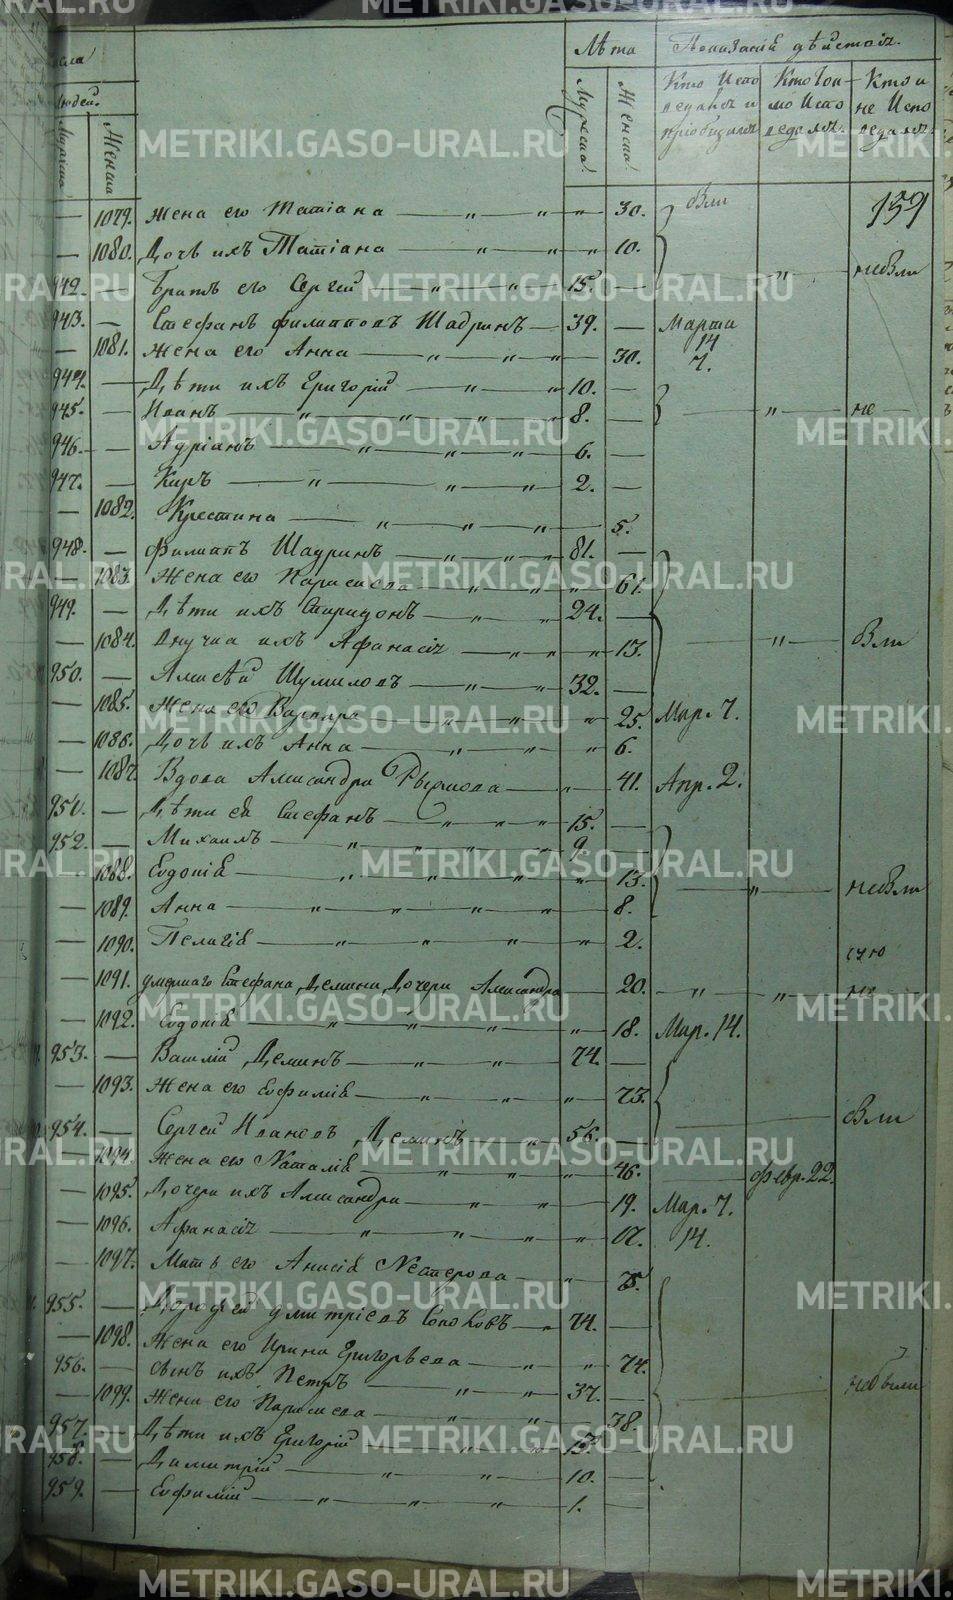 METRIKI.GASO-URAL.RU
Лѣта Показанiй дѣйствiя.
людей.
Мужеска Женска
Мужеска. Женска.
Кто Испо Кто Ток- Кто и
ведавъ и мо Испо не Испо
прiобщался ведался. ведался.
159
— 1079. Жена его Татiана — " " " 30. Были
— 1080. Дочь ихъ Татiана — " " " 10.
942. — Братъ его Сергей — " " 15. — " небыли
943. — Стефанъ Филипповъ Шадринъ — 39. — Марта 14
— 1081. Жена его Анна — " " " 30. 7.
944. — Дѣти ихъ Григорiй — " " 10. —
945. — Иванъ — " " " " 8. — " не
946. — Адрiанъ — " " " 6. —
947. — Киръ — " " " 2. —
— 1082. Крестина — " " " 5.
948. — Филипъ Шадринъ — " " 81. —
— 1083. Жена его Параскева — " " 61.
949. — Дѣти ихъ Спиридонъ — " 24. —
— 1084. Внучка ихъ Афанасiя — " " " 13. " Были
950. — Алексѣй Шумиловъ — " " 32. —
— 1085. Жена его Варвара — " " " 25. Мар. 7.
— 1086. Дочь ихъ Анна — " " " 6.
— 1087. Вдова Александра Рычкова — " 41. Апр. 2.
951. — Дѣти ея Стефанъ — " " " 15. —
952. — Михаилъ — " " " " 9. —
— 1088. Евдокiя — " " " " 13.
— 1089. Анна — " " " " 8. " небыли
— 1090. Пелагiя — " " " " 2.
— 1091. умершаго Стефана Демина Дочери Александра 20. — " " не
— 1092. Евдокiя — " " " " 18. Мар. 14.
953. — Василiй Деминъ — " " 74. —
— 1093. Жена его Евфимiя — " " 73.
954. — Сергей Ивановъ Деминъ — " 56. — Были
— 1094. Жена его Наталiя — " " " 46. Февр. 22.
— 1095. Дочери ихъ Александра — " " 19. Мар. 7.
— 1096. Афанасiя — " " " " 17. 14.
— 1097. Мать его Анисiя Нестерова — " 75.
955. — Дорофей Дмитрiевъ Соколовъ — " 74. —
— 1098. Жена его Ирина Григорьева — " " 74.
956. — Сынъ ихъ Петръ — " " 37. — небыли
— 1099. Жена его Параскева — " " 38.
957. — Дѣти ихъ Григорiй — " " 13. —
958. — Димитрiй — " " 10. —
959. — Евфимiй — " " " " 1. —